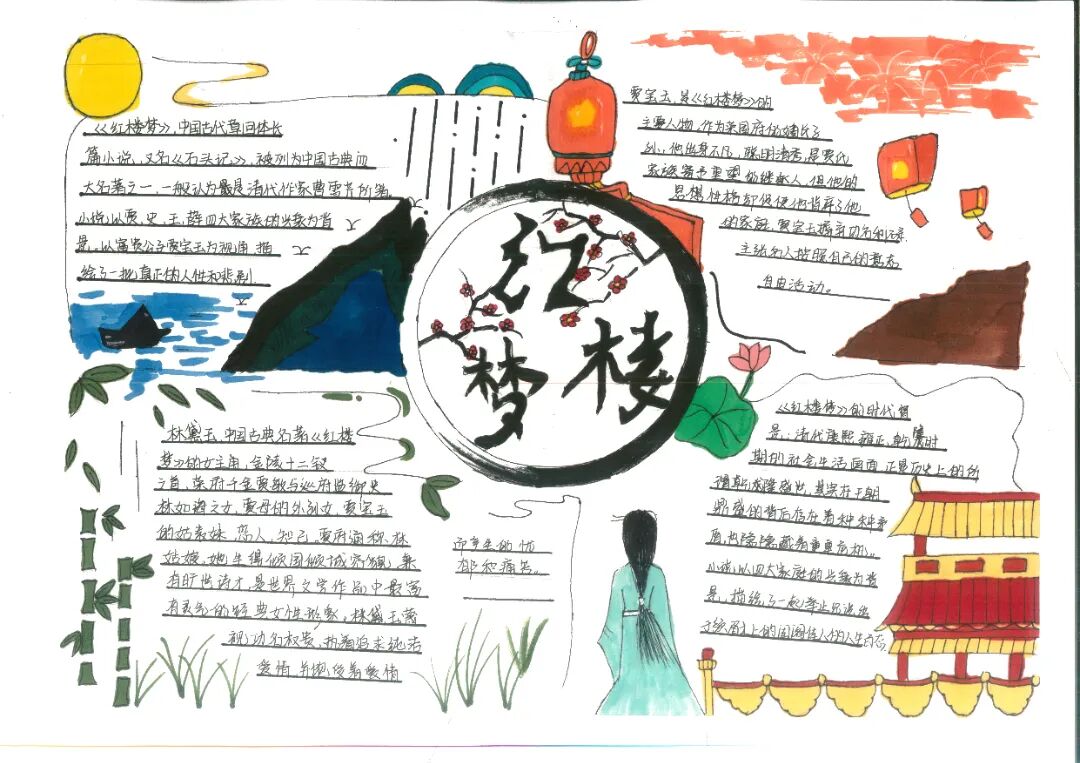 《《红楼梦》,中国古代章回体长
篇小说,又名《石头记》,被列为中国古典四
大名著之一,一般认为最是清代作家曹雪芹所著。
小说以贾、史、王、薛四大家族的兴衰为背
景,以富贵公子贾宝玉为视角,描
绘了一批真正的人性和悲剧
红
楼
梦
贾宝玉,是《红楼梦》的
主要人物。作为荣国府
他出身不凡,聪明
家族 重望 继承人,但他的
思想性格却促使他背弃了他
的家庭。贾宝玉
主张 人按照自己的
自由活动。
林黛玉,中国古典名著《红楼
梦》的女主角,金陵十二钗
之首,荣府千金贾敏与巡府
林如海之女,贾母的外孙女,贾宝玉
的姑表妹、恋人、知己,贾府
姑娘。她生得倾国倾城 兼
有旷世诗才,是世界文学作品中最富
有灵气的经典女性形象。林黛玉蔑
视功名权贵,
爱情 爱情
而产生的忧
郁和痛苦。
《红楼梦》的时代背
景:清代康熙、雍正、乾隆时
期的社会生活画面,正是历史上的所
谓 盛世,其实在
鼎盛的背后存在着种种矛
盾,
小说以四大家庭的兴衰为背
景,描绘了一
于 上的闺阁佳人的人生